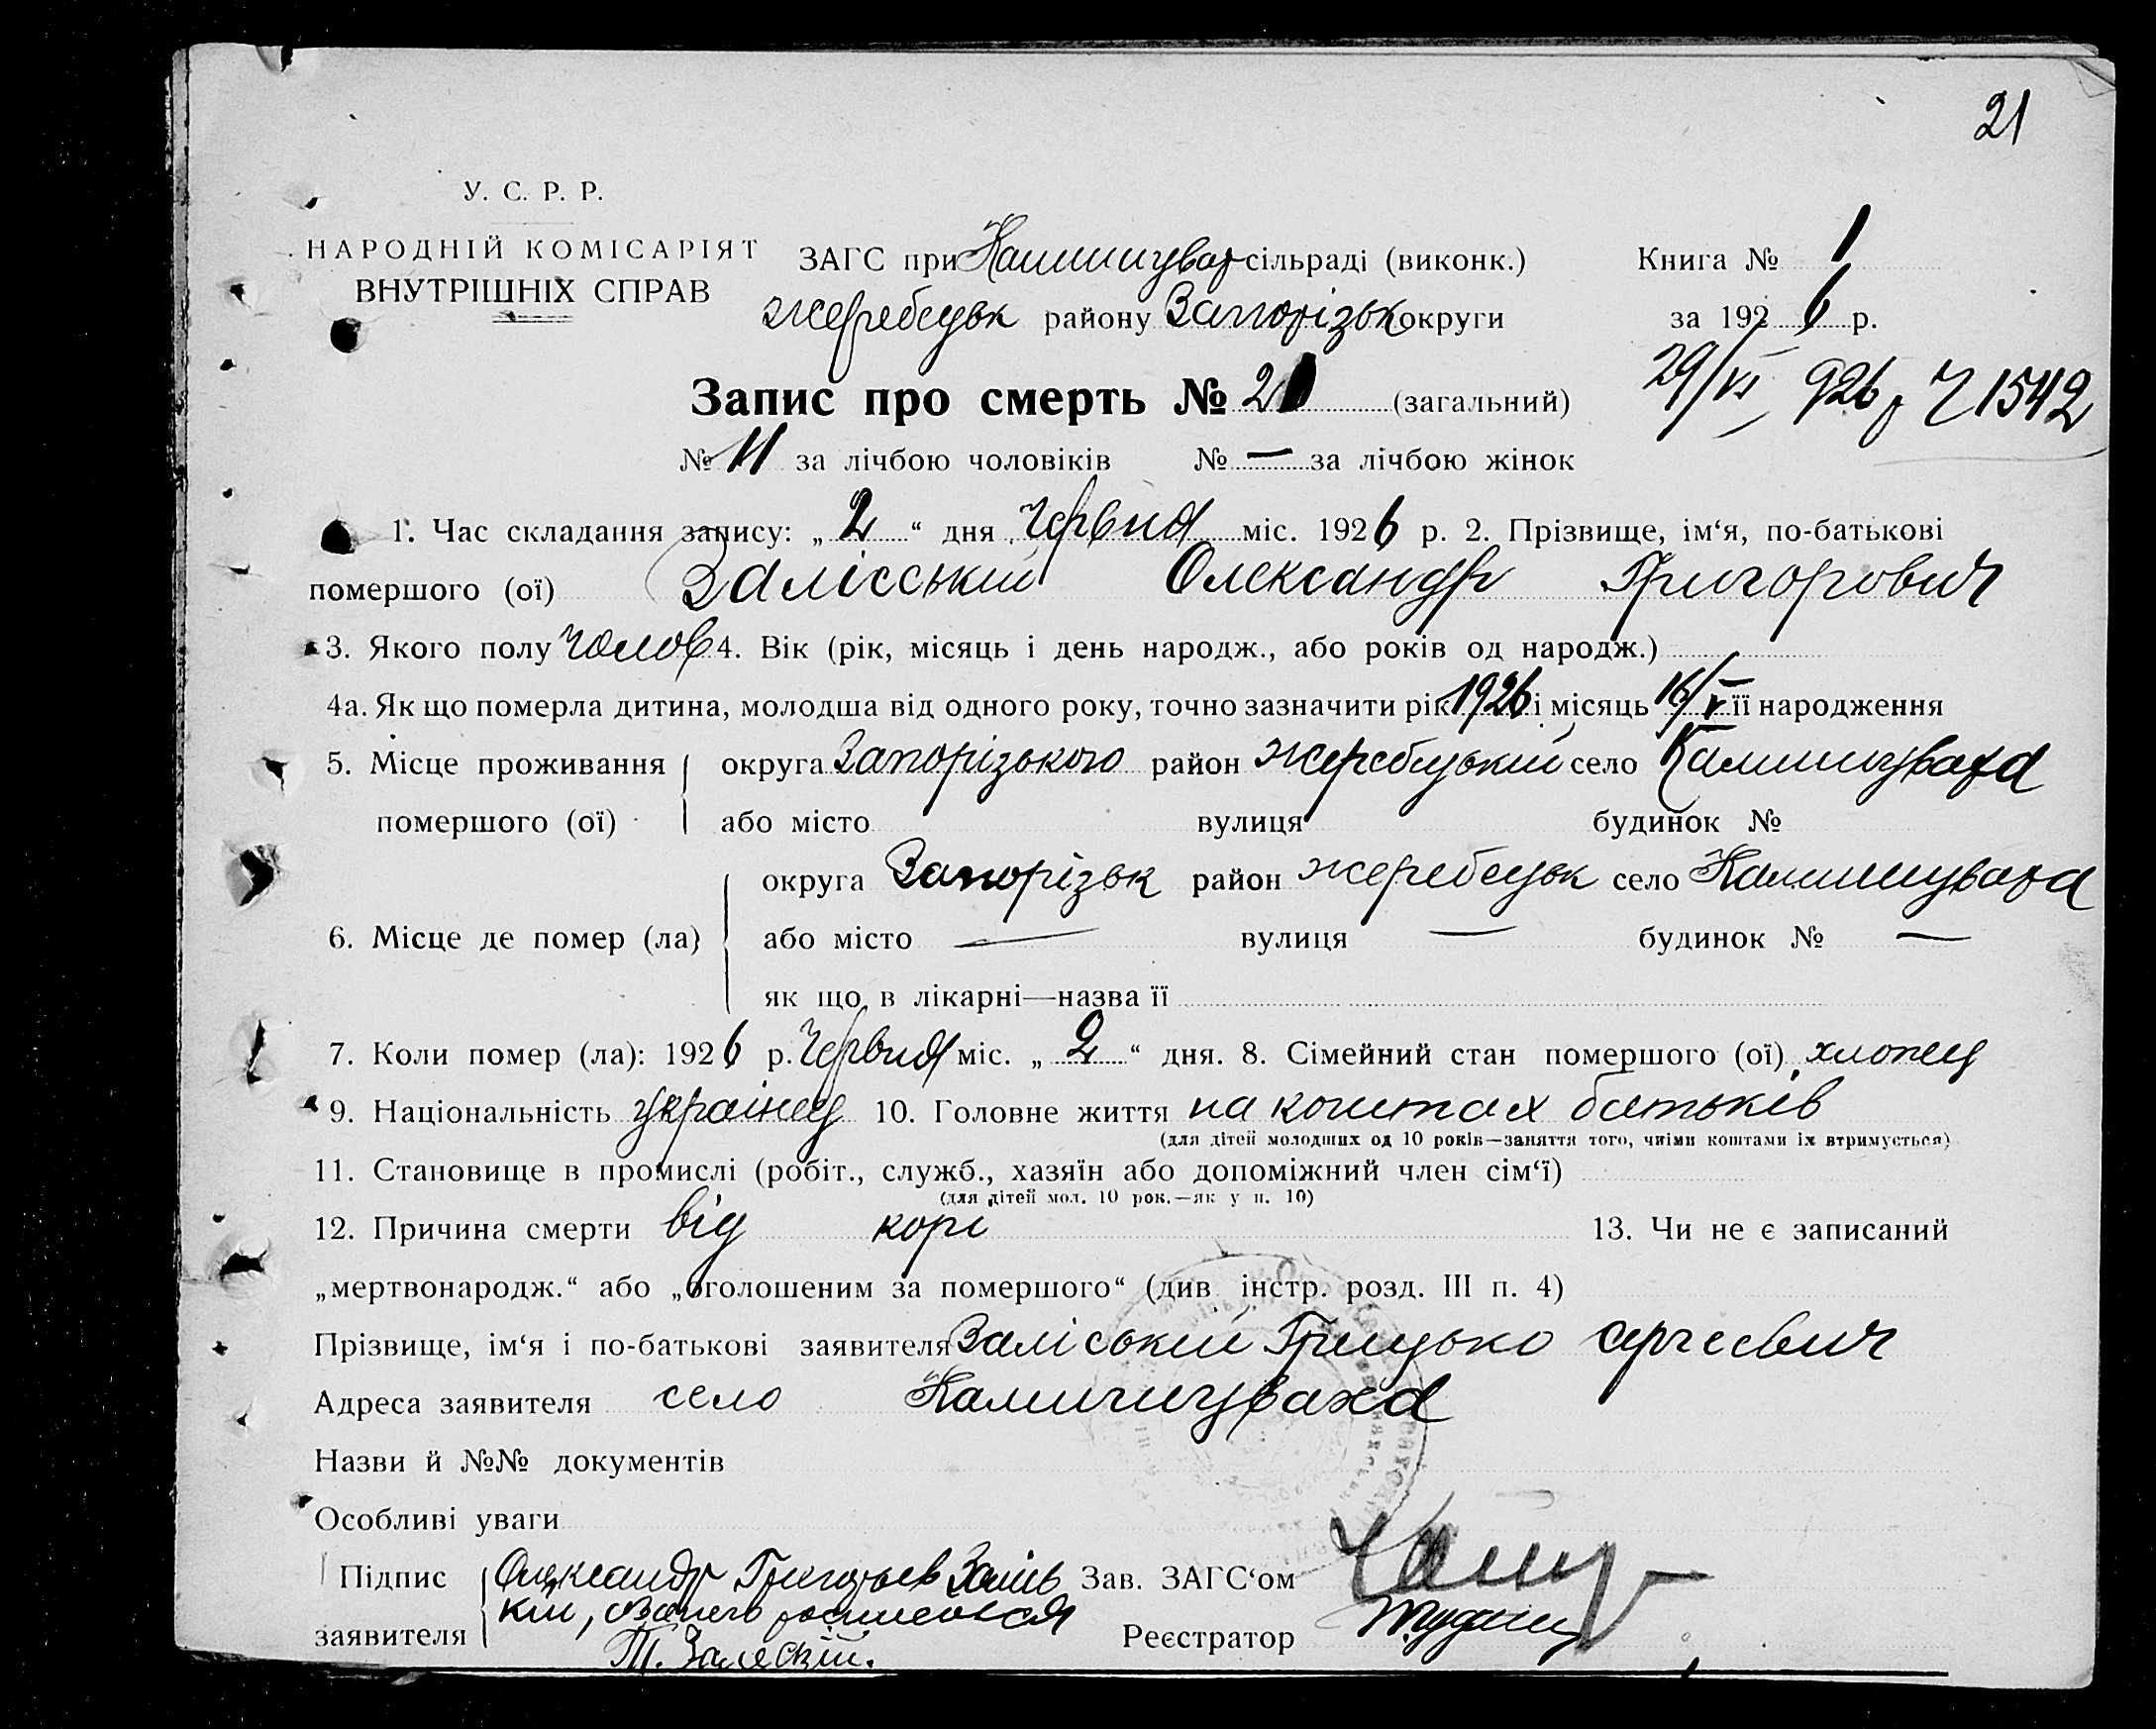 21
У. С. Р. Р.
НАРОДНІЙ КОМІСАРІЯТ
ВНУТРІШНІХ СПРАВ
ЗАГС при Камишуват сільраді (виконк.)
Жеребецьк району Запорізьк округи
Книга № 1
за 1926 р.
29/VI 926 р Ч 1542
Запис про смерть № 21 (загальний)
№ 11 за лічбою чоловіків № — за лічбою жінок
1. Час складання запису: „2“ дня Червня міс. 1926 р. 2. Прізвище, ім‘я, по-батькові
помершого (ої) Заліський Олександр Григорович
3. Якого полу чолов 4. Вік (рік, місяць і день народж., або років од народж.)
4а. Як що померла дитина, молодша від одного року, точно зазначити рік 1926 і місяць 16/V її народження
5. Місце проживання помершого (ої) округа Запорізького район жеребецький село Камишуваха
або місто вулиця будинок №
6. Місце де помер (ла) округа Запорізьк район жеребецьк село Камишуваха
або місто — вулиця — будинок № —
як що в лікарні—назва її
7. Коли помер (ла): 1926 р. Червня міс. „2“ дня. 8. Сімейний стан помершого (ої) хлопец
9. Національність українец 10. Головне життя на коштах батьків
(для дітей молодших од 10 років—заняття того, чиїми коштами їх втримується)
11. Становище в промислі (робіт., служб., хазяїн або допоміжний член сім‘ї)
(для дітей мол. 10 рок.—як у п. 10)
12. Причина смерти від корі 13. Чи не є записаний
„мертвонародж.“ або „оголошеним за помершого“ (див. інстр. розд. III п. 4)
Прізвище, ім‘я і по-батькові заявителя Заліський Грицько сергеевич
Адреса заявителя село Камишуваха
Назви й №№ документів
Особливі уваги
Підпис заявителя Олександр Григорьев Залісь
кий, за
Зав. ЗАГС‘ом
Реєстратор